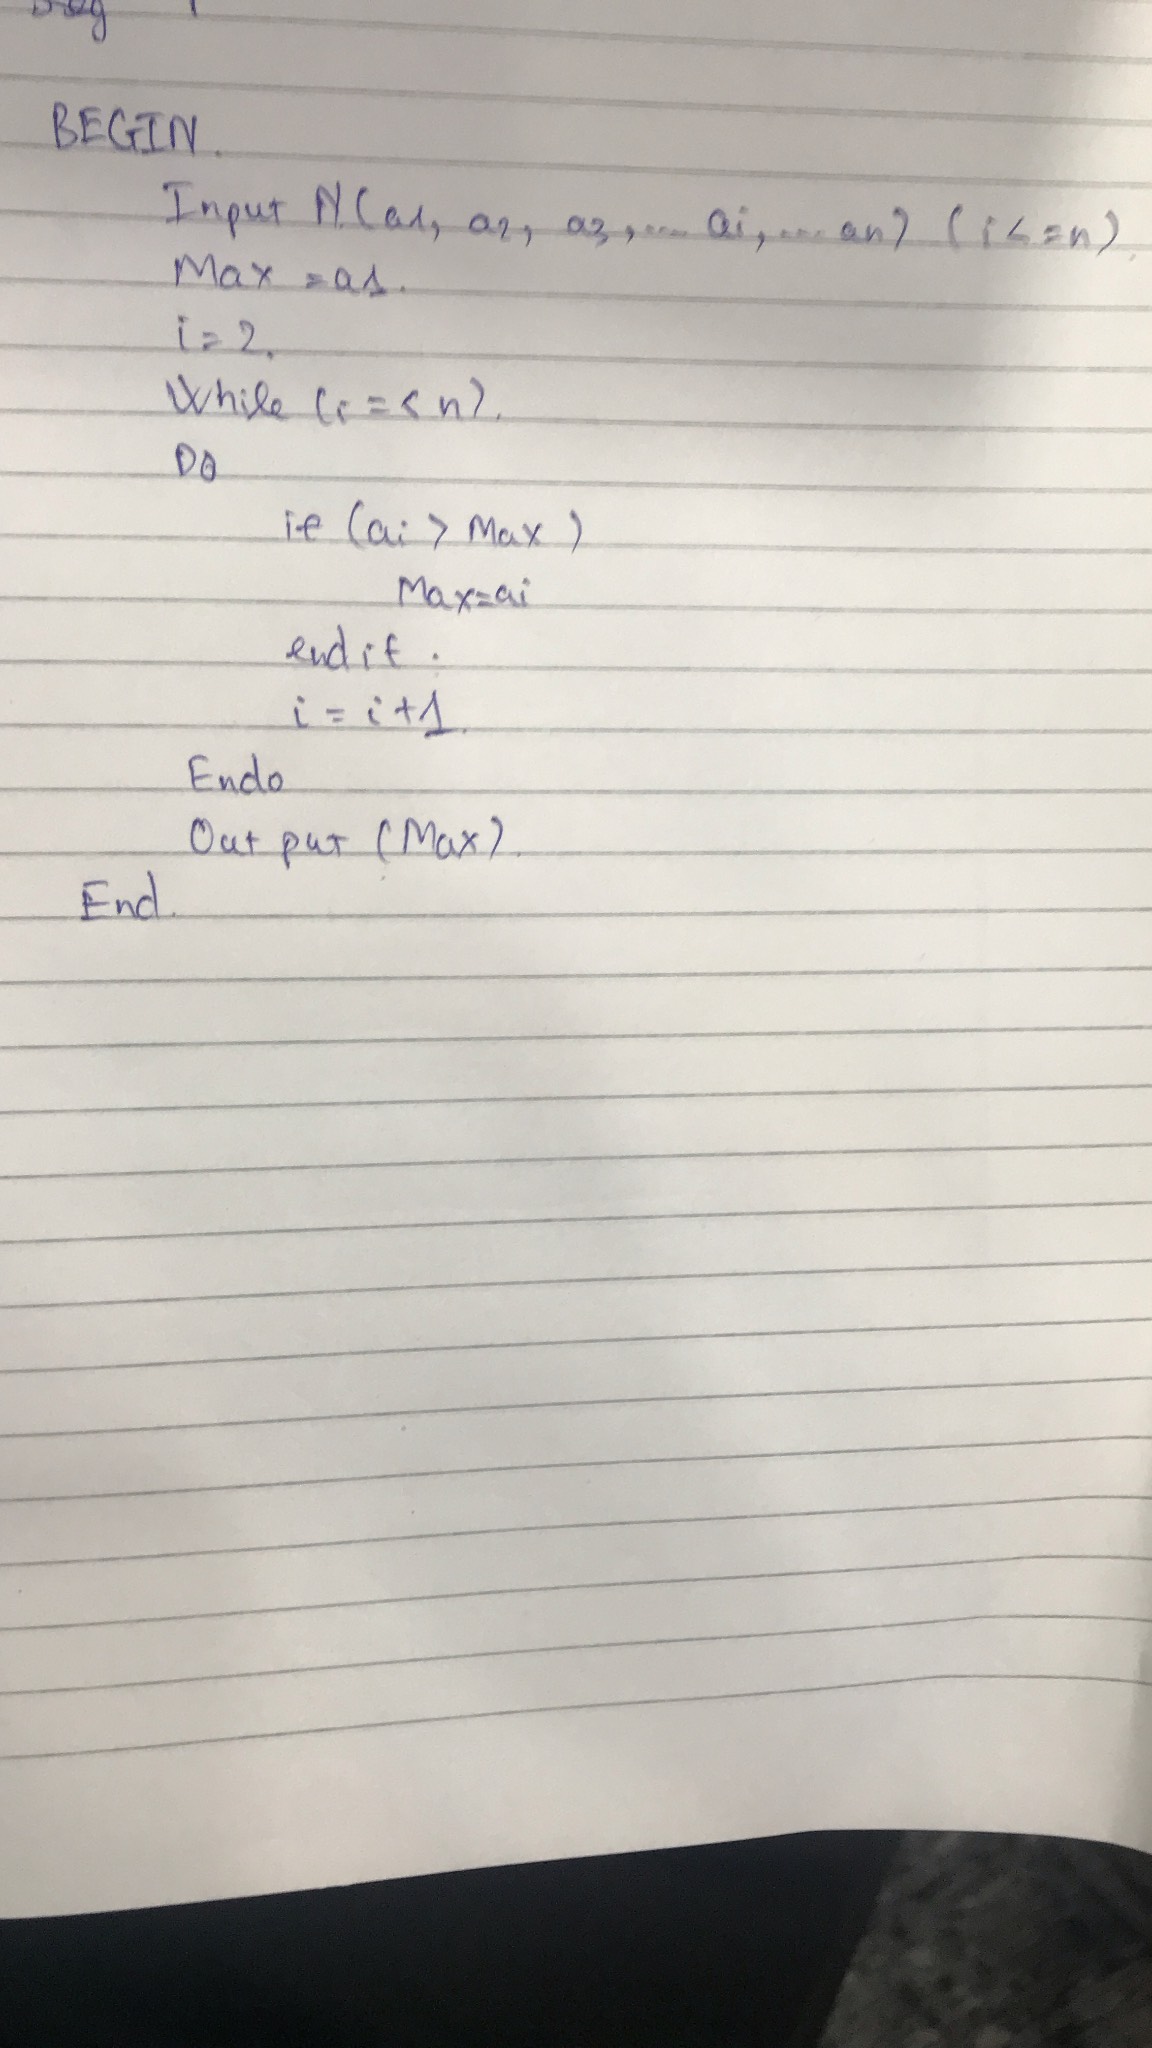 BEGIN.
Input N(a1, a2, a3,... ai,... an) (i<=n).
Max = a1.
i = 2.
While (i =< n).
Do
if (ai > Max)
Max=ai
endif.
i = i+1.
Endo
Out put (Max).
End.